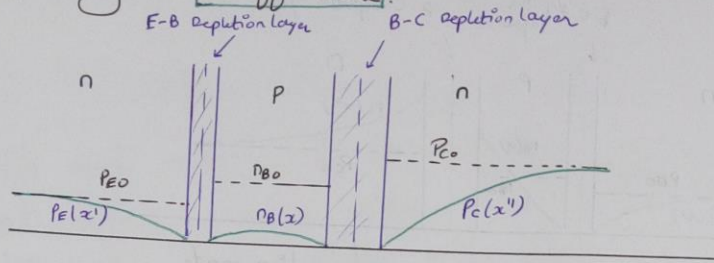 E-B Depletion layer
B-C Depletion layer
n
P
n
PEO
nBO
PCO
PE(x')
nB(x)
PC(x")